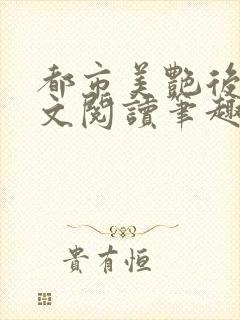 都市美艷後
文閱讀筆趣
貴有恒